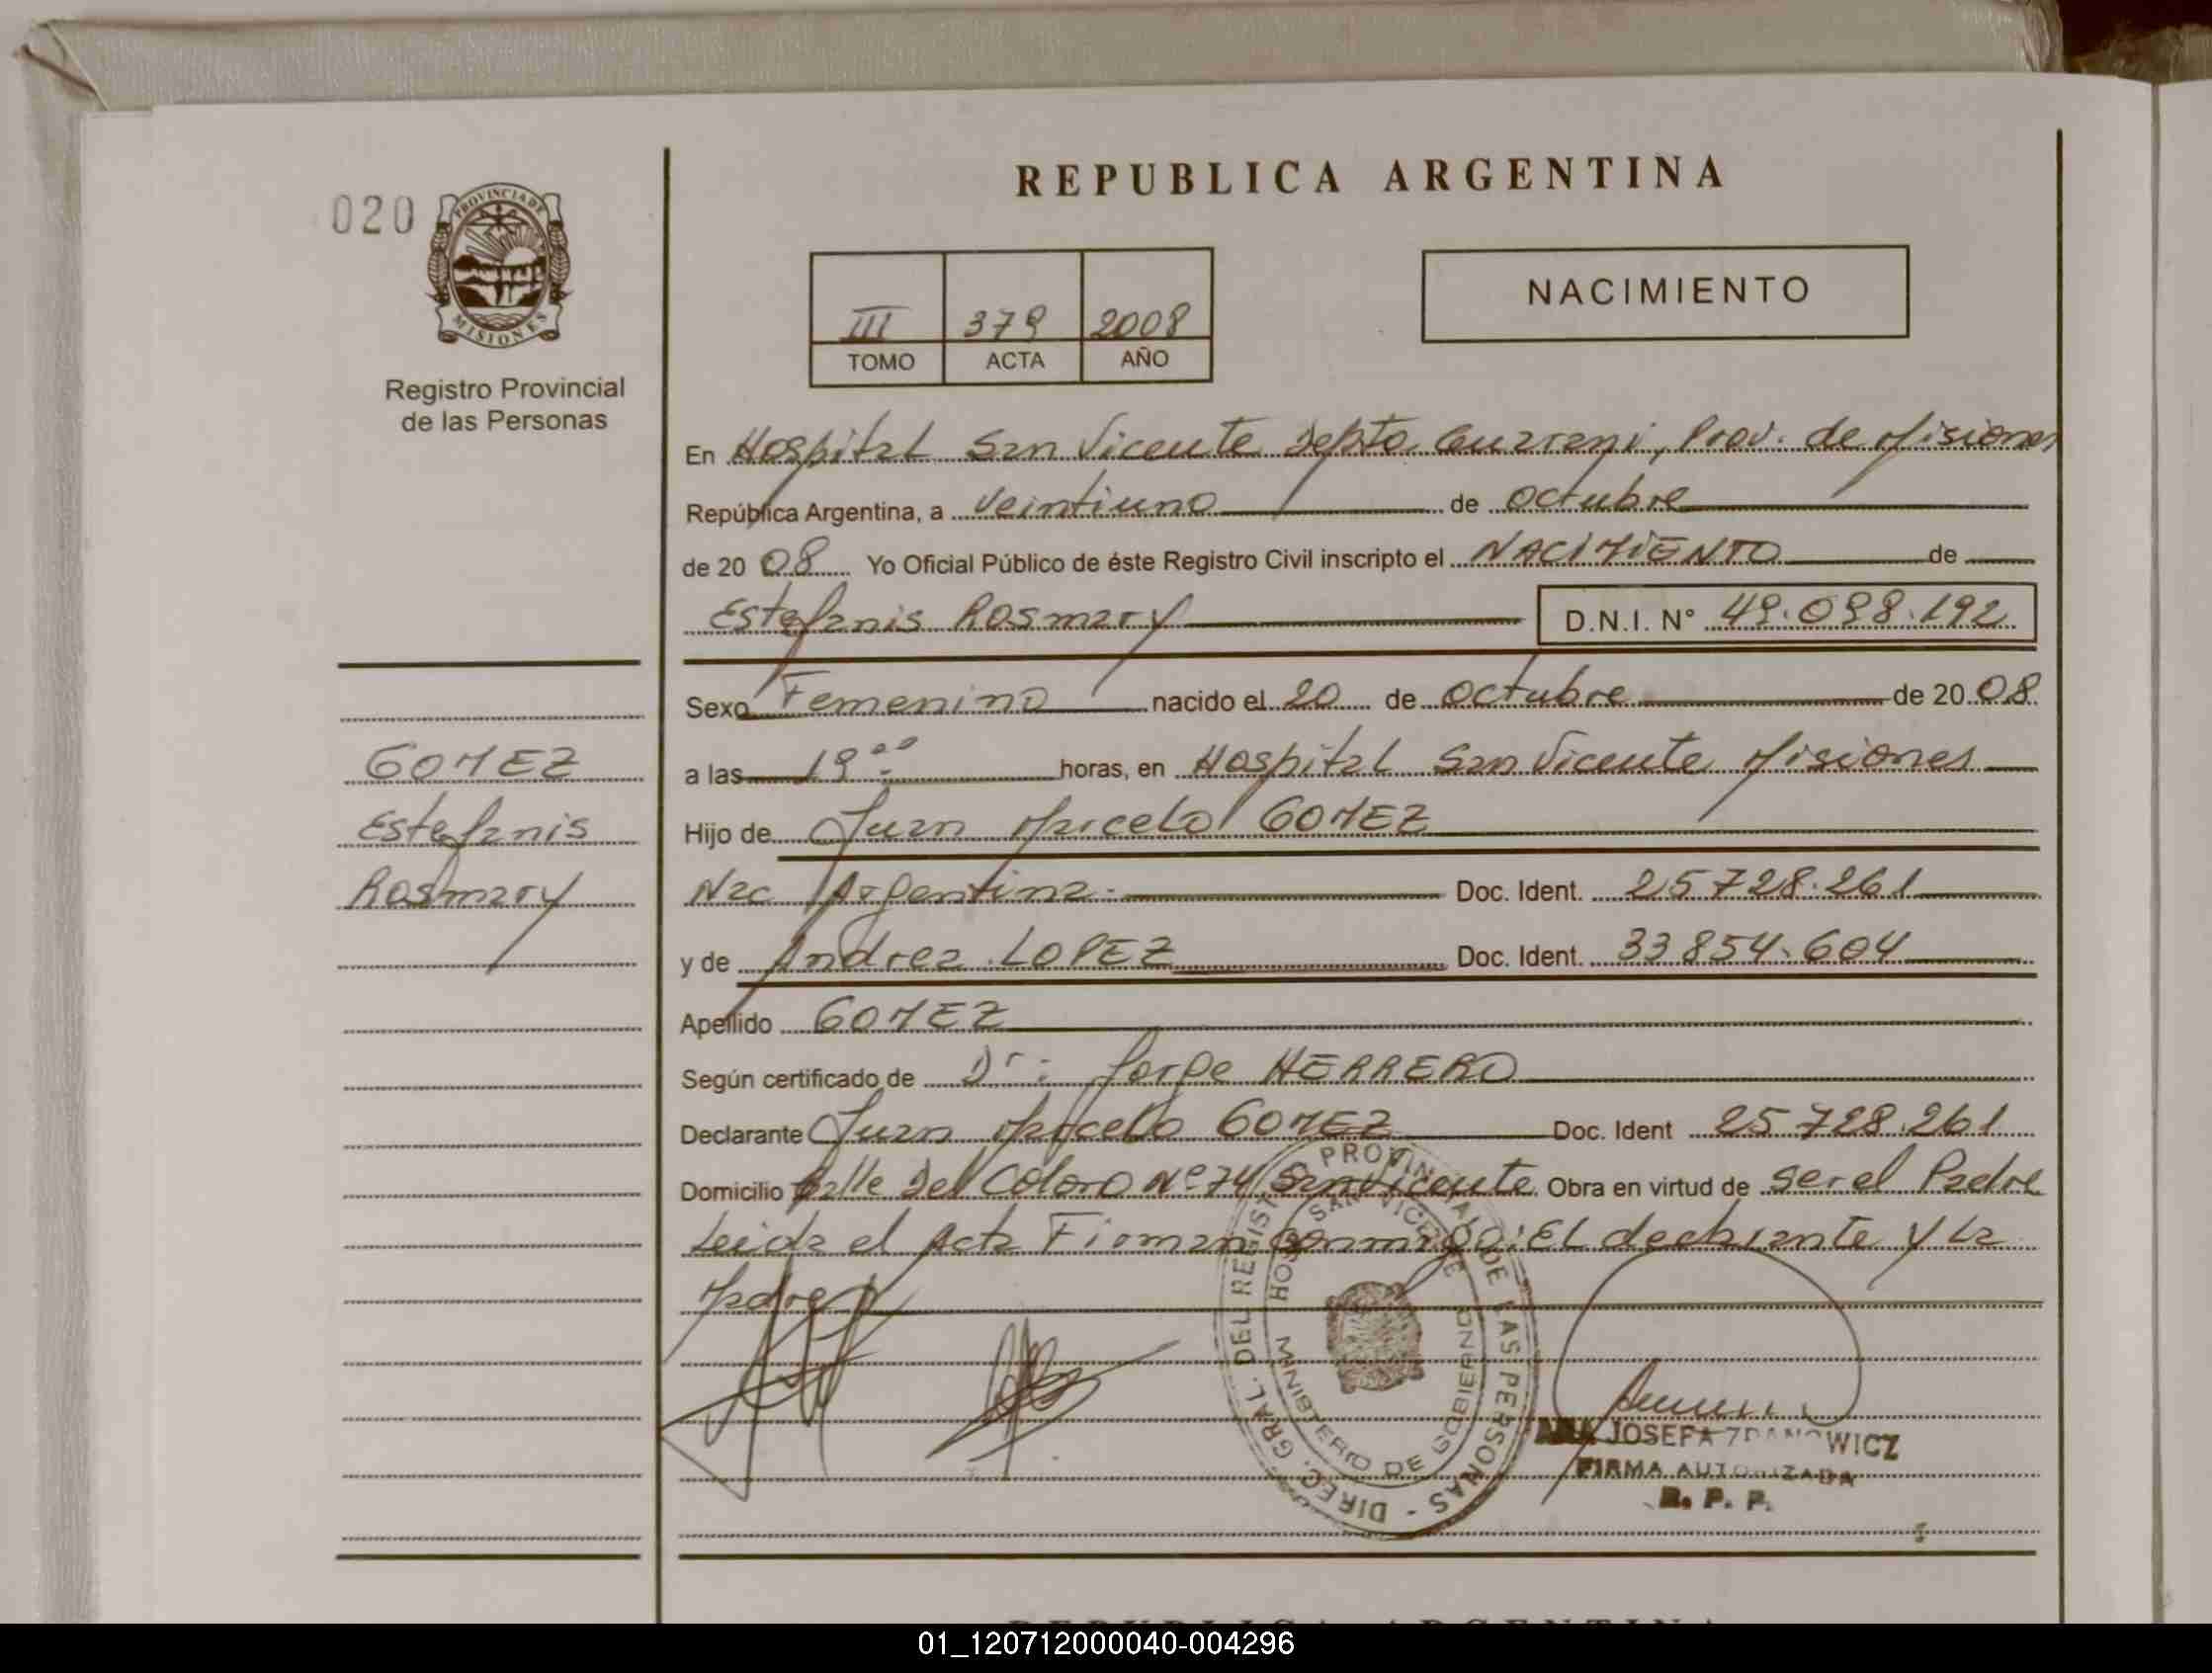 REPUBLICA ARGENTINA
020
PROVINCIA DE
MISIONES
Registro Provincial
de las Personas
NACIMIENTO
III 379 2008
TOMO ACTA AÑO
En Hospital San Vicente Depto Guarani, Prov. de Misiones
República Argentina, a veintiuno de octubre
de 20 08 Yo Oficial Público de éste Registro Civil inscripto el NACIMIENTO de
Estefania Rosmary D.N.I. Nº 49.098.192
Sexo Femenino nacido el 20 de octubre de 20 08
GOMEZ
Estefania
Rosmary
a las 19 00 horas, en Hospital San Vicente Misiones
Hijo de Juan Marcelo GOMEZ
Nac Argentina. Doc. Ident. 25.728.261
y de Andrea LOPEZ Doc. Ident. 33.854.604
Apellido GOMEZ
Según certificado de Dr: Jorge HERRERO
Declarante Juan Marcelo GOMEZ Doc. Ident 25.728.261
Domicilio Calle Del Coloro Nº 74 San Vicente Obra en virtud de ser el Padre
Leida el Acta Firman conmigo: El declarante y La
Madre
DIREC. GRAL. DEL REGIST. PROVINCIAL DE LAS PERSONAS -
HOSP. SAN VICENTE
MINISTERIO DE GOBIERNO
ANA JOSEFA
FIRMA AUTORIZADA
R. P. P.
REPUBLICA ARGENTINA
01_120712000040-004296